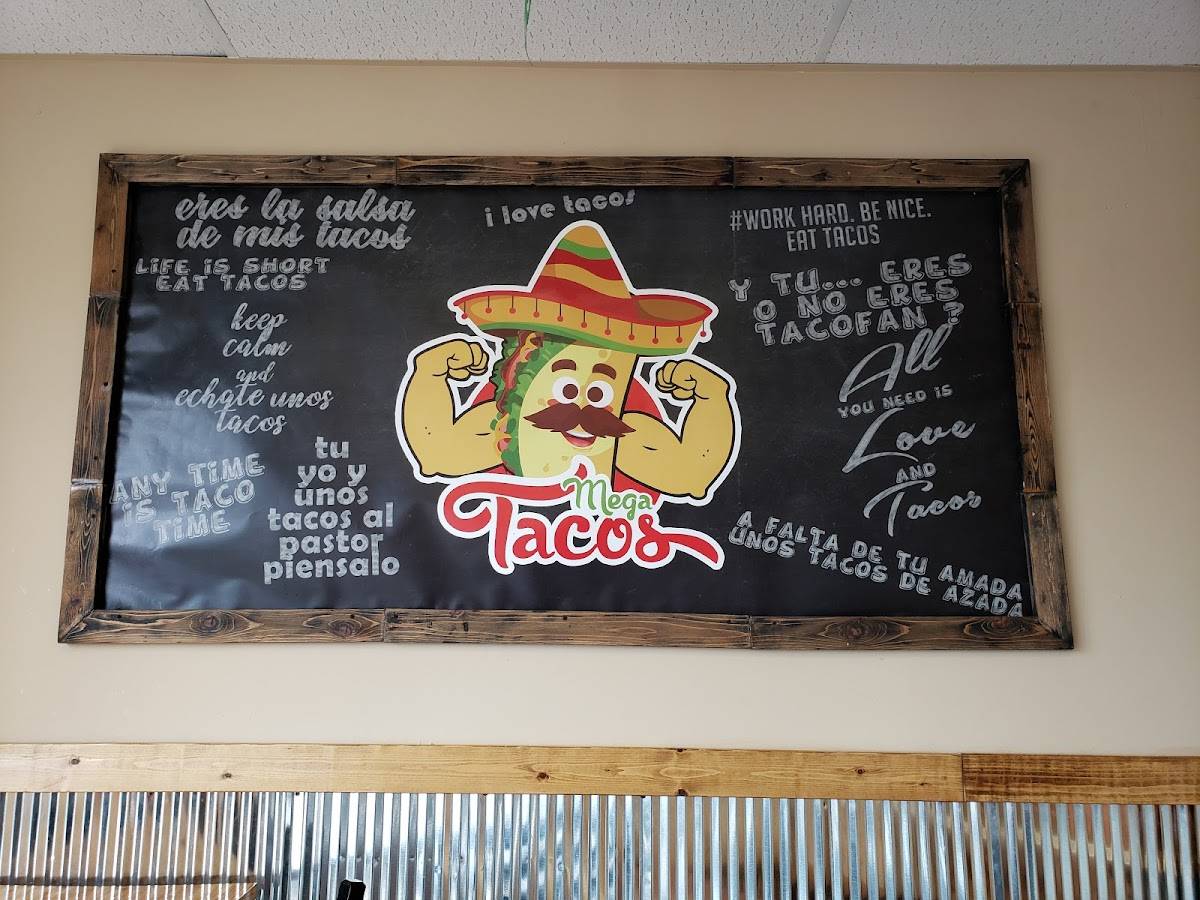 eres la salsa
de mis tacos
LIFE IS SHORT
EAT TACOS
keep
calm
and
echate unos
tacos
ANY TIME
IS TACO
TIME
tu
yo y
unos
tacos al
pastor
piensalo
i love tacos
Mega
Tacos
#WORK HARD. BE NICE.
EAT TACOS
Y TU... ERES
O NO ERES
TACOFAN ?
All
YOU NEED IS
Love
AND
Tacos
A FALTA DE TU AMADA
UNOS TACOS DE AZADA